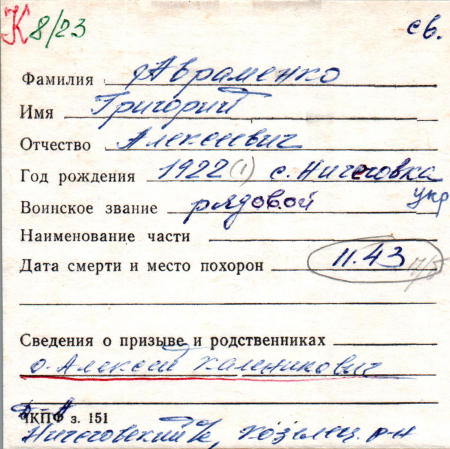 К 8/23 св.
Фамилия Авраменко
Имя Григорий
Отчество Алексеевич
Год рождения 1922 (1) с. Ничеговка
Воинское звание рядовой укр
Наименование части
Дата смерти и место похорон 11.43
Сведения о призыве и родственниках
о. Алексей Халимкович
ЧКПФ з. 151
Ничеговский Козелец. р-н